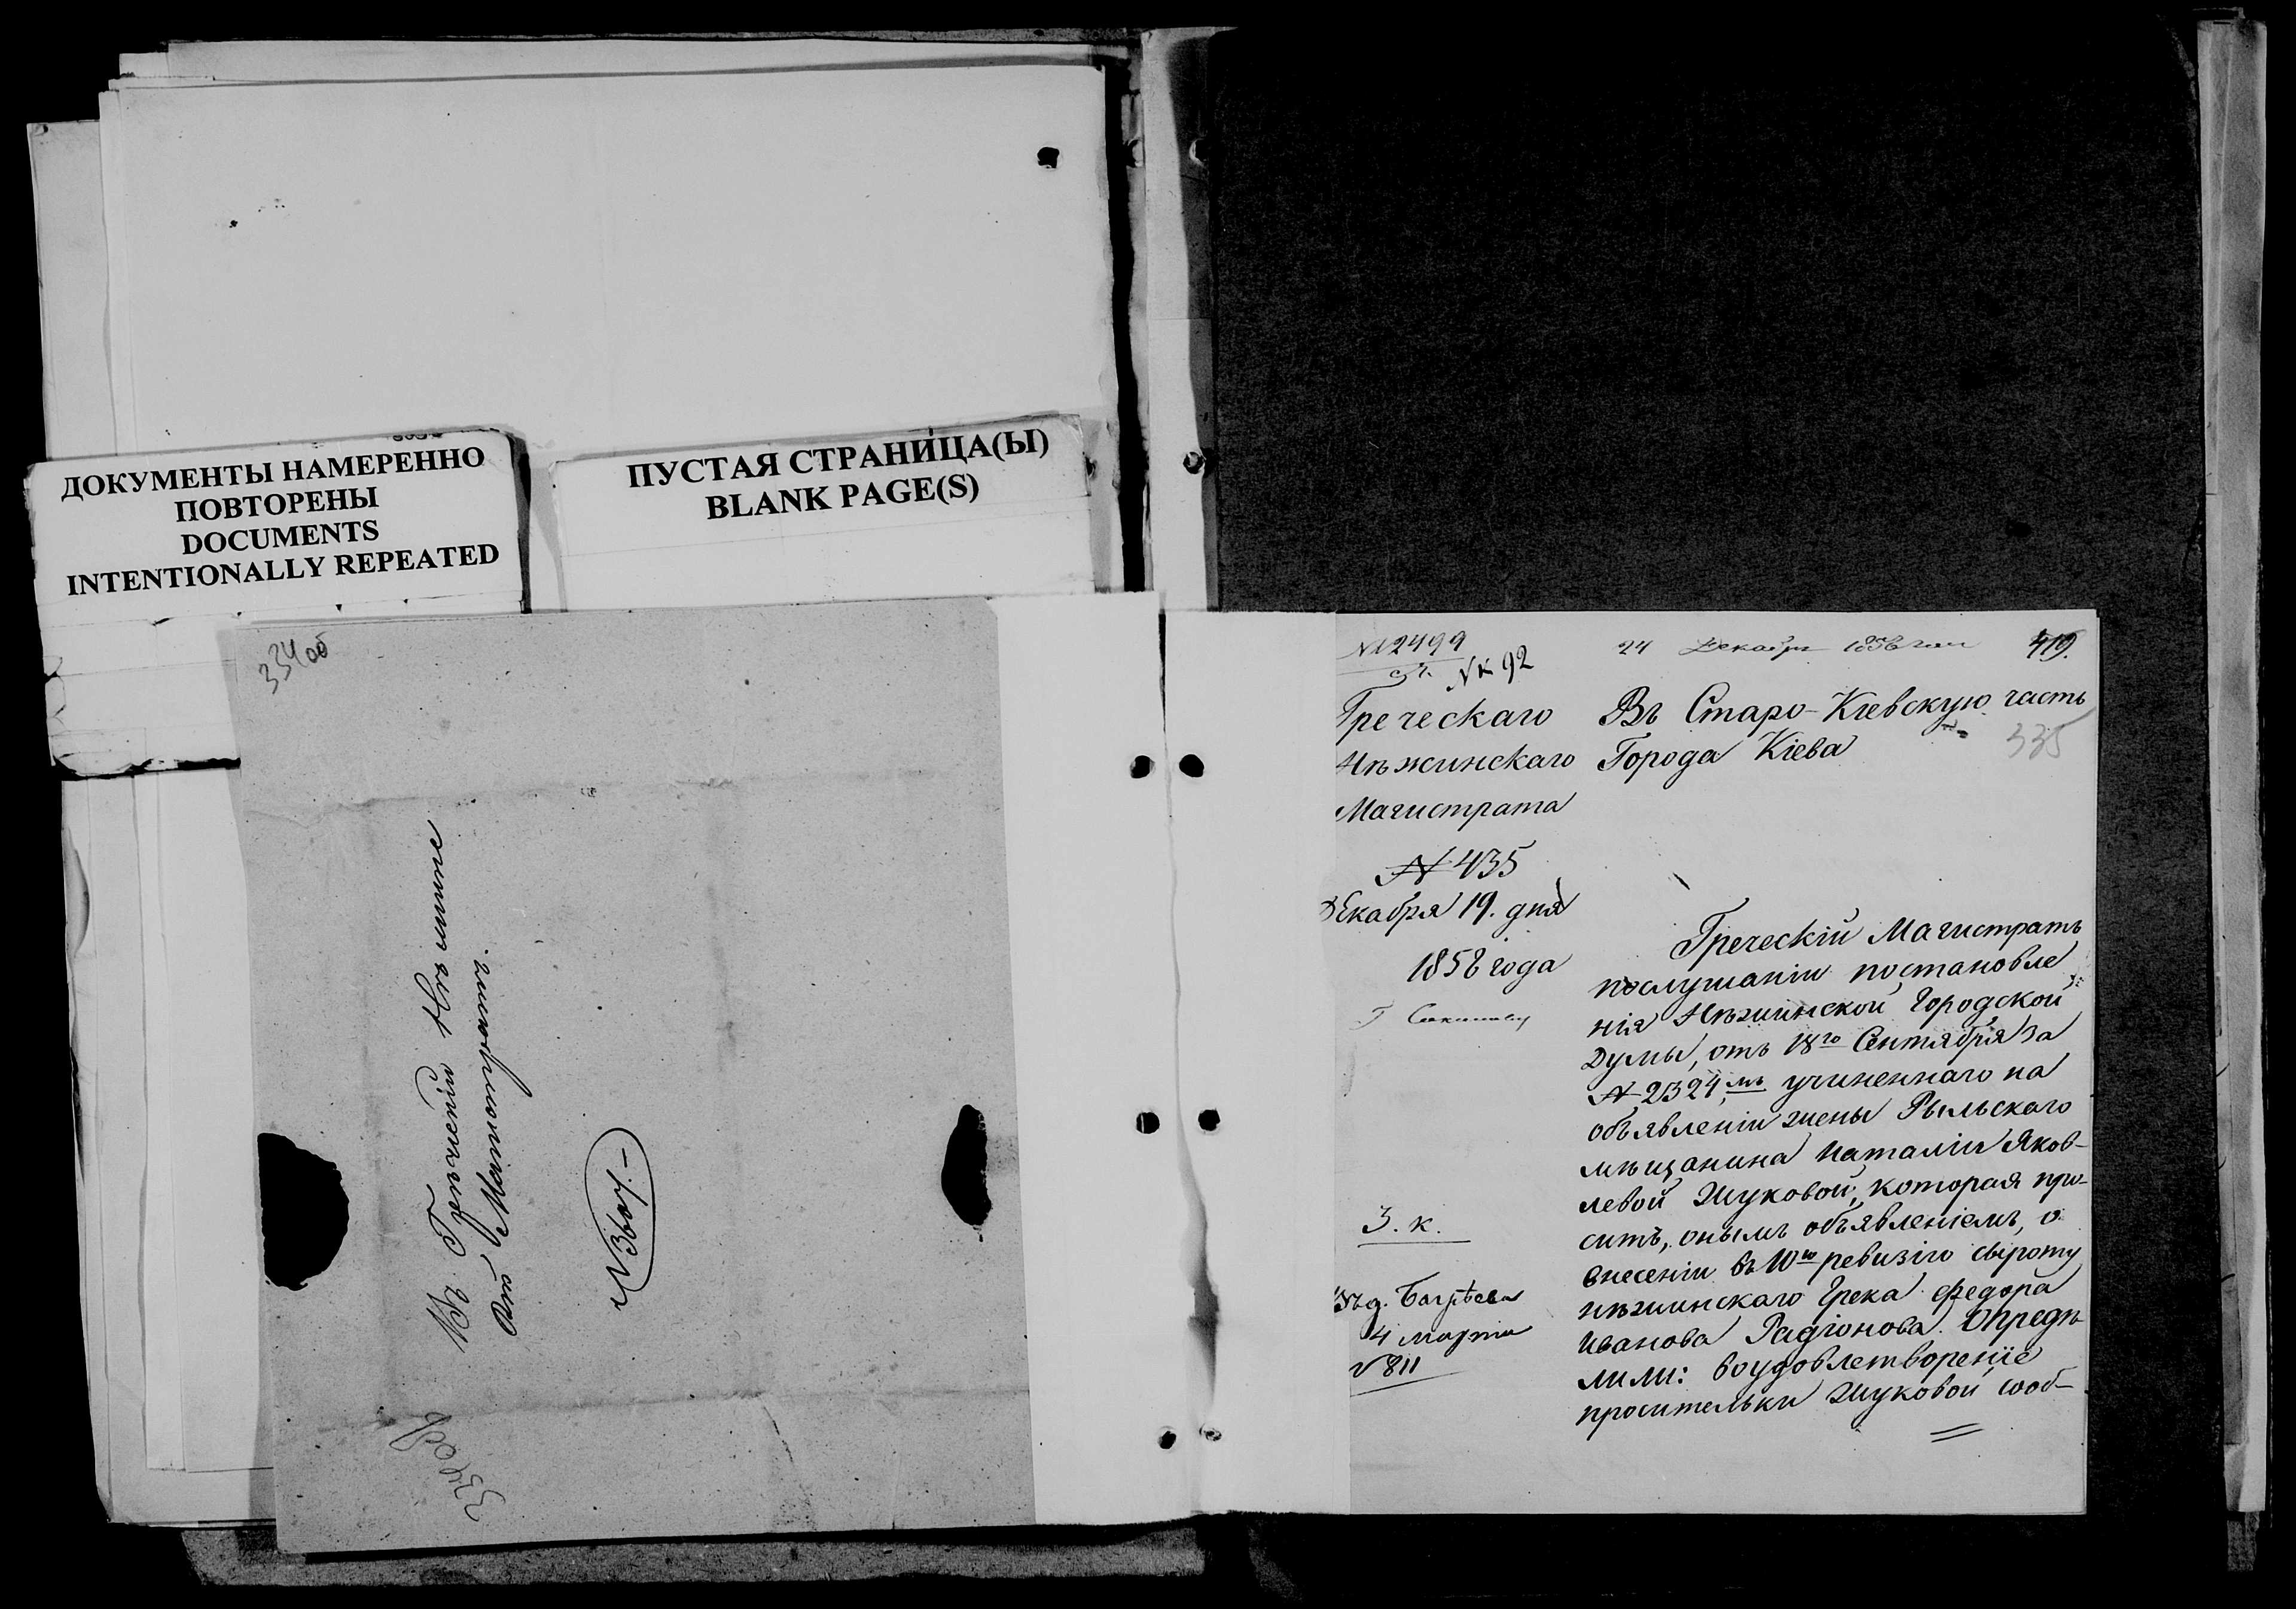 ДОКУМЕНТЫ НАМЕРЕННО
ПОВТОРЕНЫ
DOCUMENTS
INTENTIONALLY REPEATED
ПУСТАЯ СТРАНИЦА(Ы)
BLANK PAGE(S)
334об
Въ Греческій Нѣжинс
кій Магистратъ.
№2499
№к 92
24 Декабря 1858 года
419.
335
Греческаго
Нѣжинскаго
Магистрата
№ 435
Декабря 19. дня
1858 года
З. к.
4 марта
№811
Въ Старо-Кіевскую часть
Города Кіева
Греческій Магистратъ
послушаніи постановле
нія Нѣжинской Городской
Думы, отъ 18го Сентября за
№ 2324,мъ учиненнаго на
объявленіи жены Рыльскаго
мѣщанина Наталіи Яков-
левой Жуковой, которая про-
ситъ, онымъ объявленіемъ, о
внесеніи въ 10ю ревизію сыроту
нѣжинскаго Грека Федора
Иванова Радіонова. Опредѣ
лили: воудовлетвореніе
просительки Жуковой сооб-